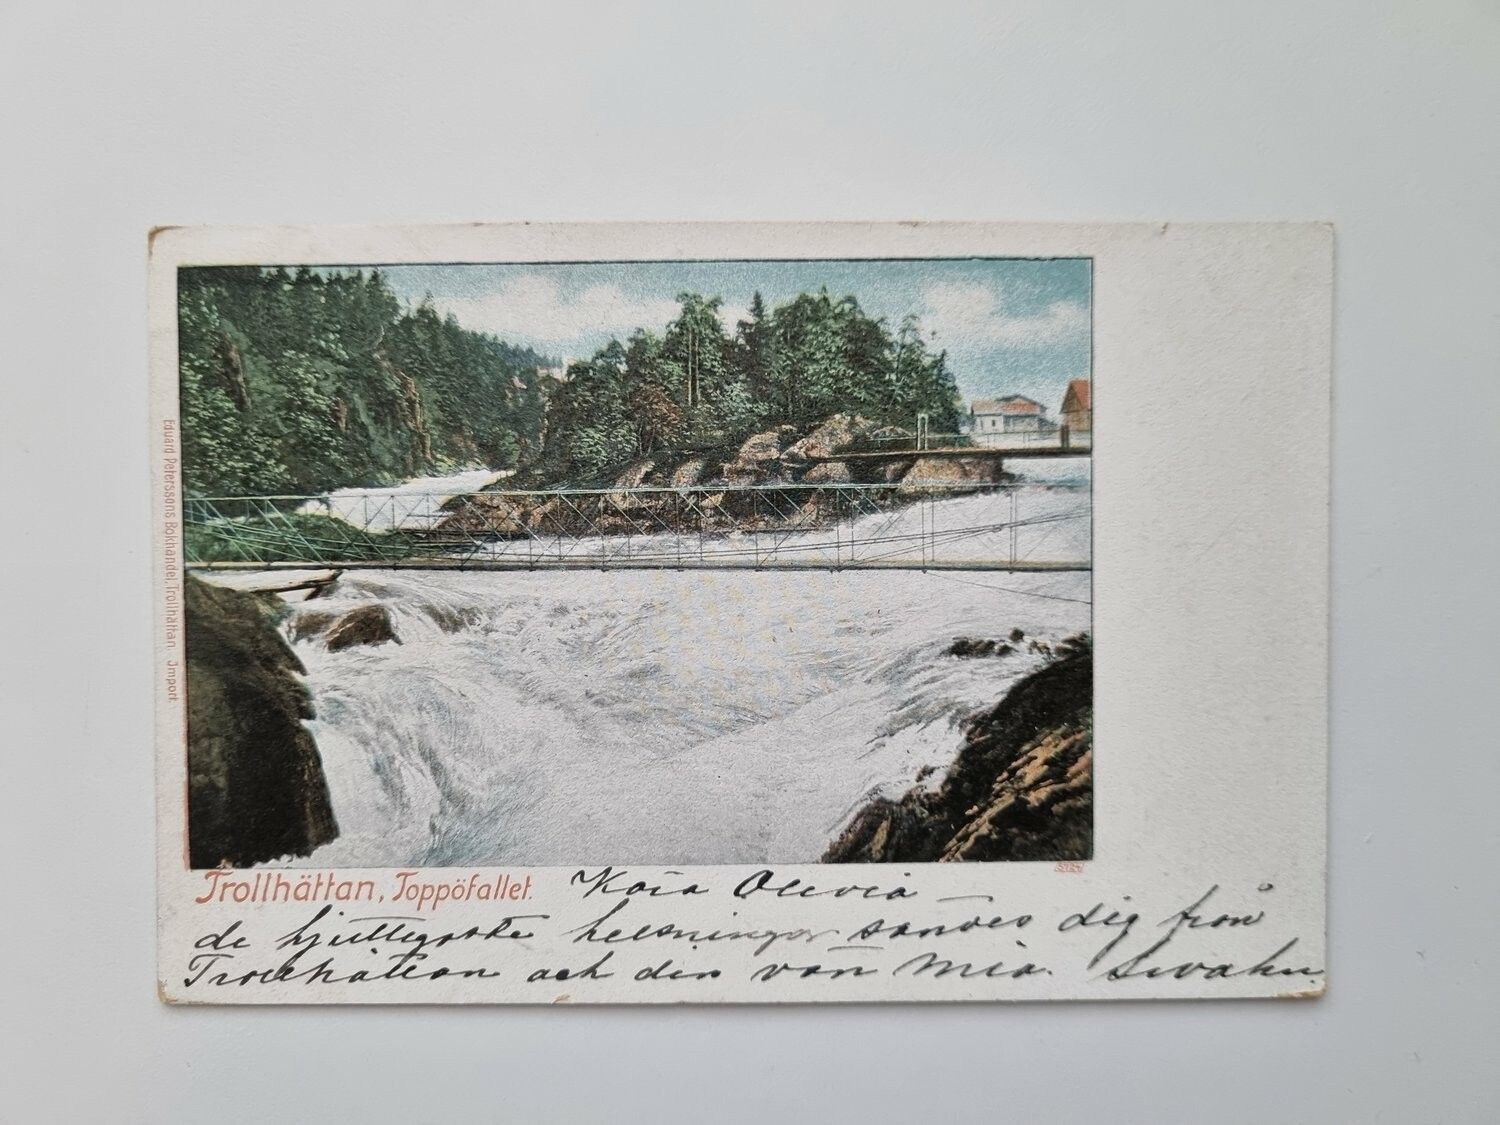 Eduard Peterssons Bokhandel, Trollhättan. Import.
Trollhättan, Toppöfallet.
Kära Olivia
de hjuttegaste helsningar sändes dig från
Trollhättan ach din vän Mia.